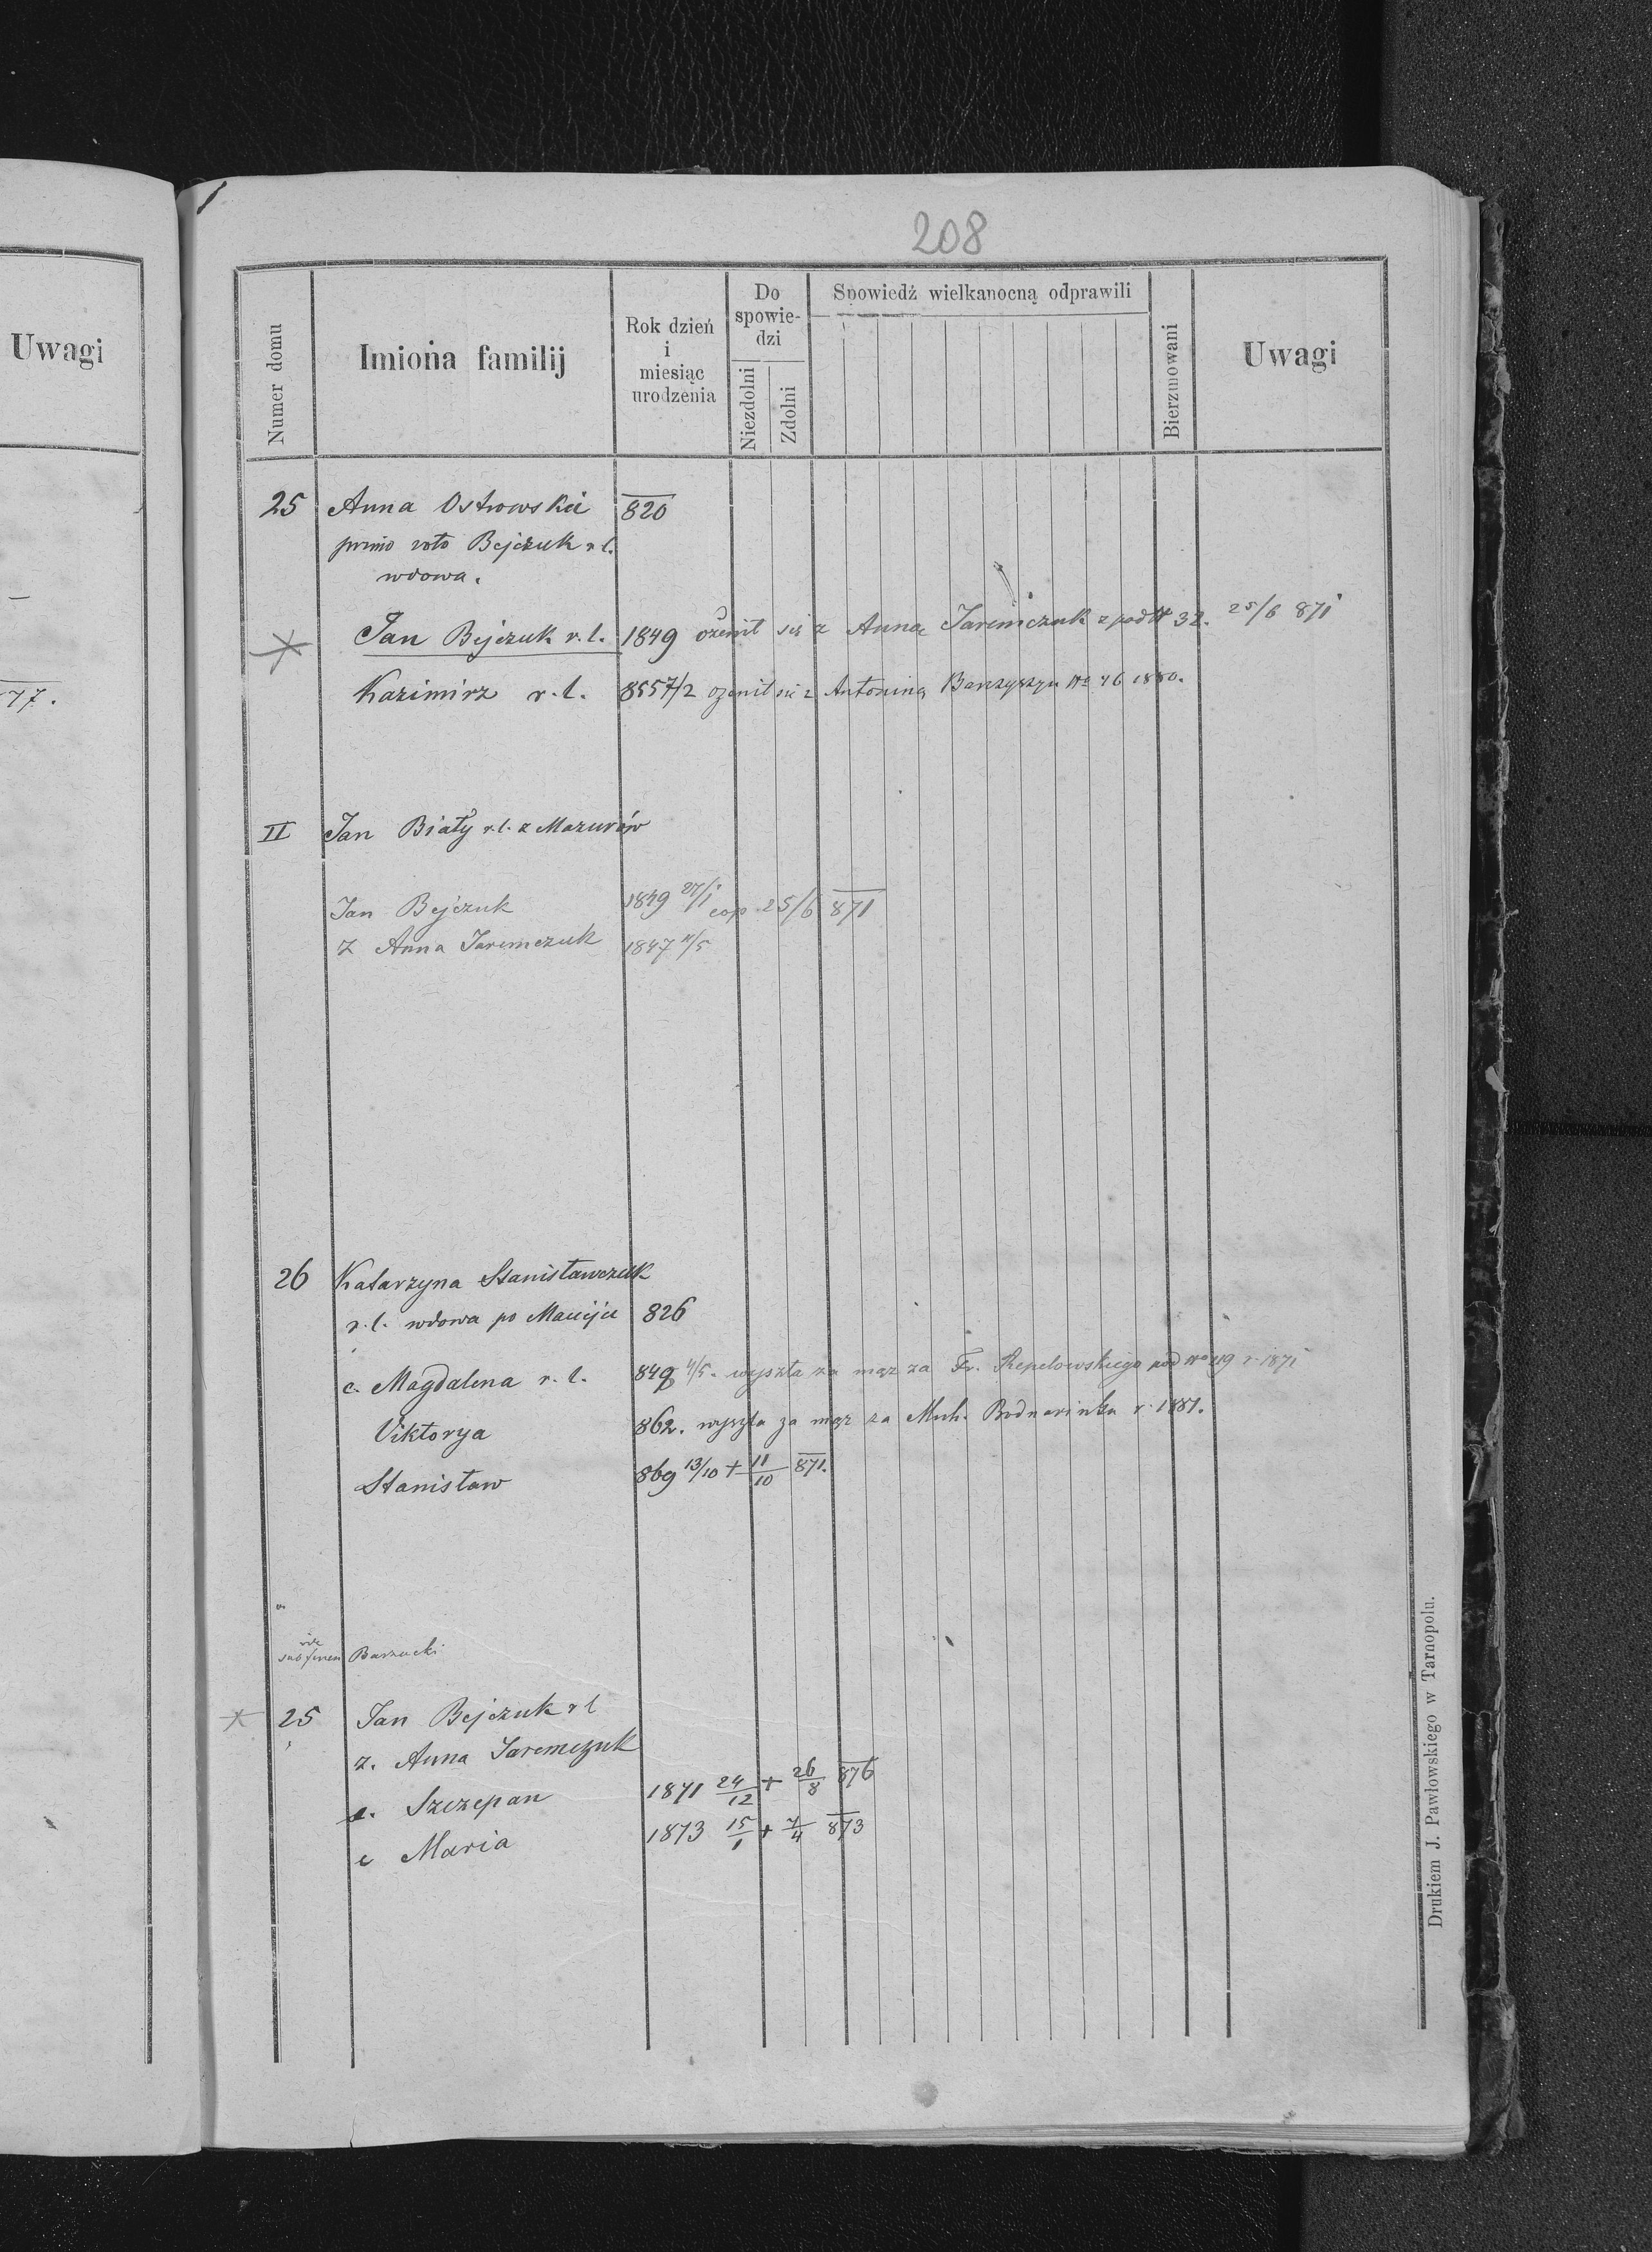 Uwagi
77.
208
Numer domu
Imiona familij
Rok dzień
i
miesiąc
urodzenia
Do
spowie-
dzi
Niezdolni
Zdolni
Spowiedź wielkanocną odprawili
Bierzmowani
Uwagi
25 Anna Ostrowska 820
primo voto Bejczuk r. l.
wdowa.
Jan Bejczuk r. l. 1849 ożenił się z Anną Jaremczuk z pod N 32. 25/6 871
Kazimirz r. l. 855 7/2 ożenił się z Antoniną No 46 1880.
II Jan Biały r. l. z Mazurów
Jan Bejczuk 1849 27/1 cop. 25/6 871
Ż Anna Jaremczuk 1847 11/5
26 Katarzyna Stanisławczuk
r. l. wdowa po Macieju 826
c. Magdalena r. l. 849 4/5. wyszła za mąż za Fr. Repelowskiego pod No 119 r. 1871
Viktorya 862. wyszła za mąż za Mich. r. 1881.
Stanisław 869 13/10 + 11/10 871.
vide
sub finem Barzucki
25 Jan Bejczuk r l
ż. Anna Jaremczuk
Szczepan 1871 24/12 + 26/8 876
c Maria 1873 15/1 + 7/4 873
Drukiem J. Pawłowskiego w Tarnopolu.